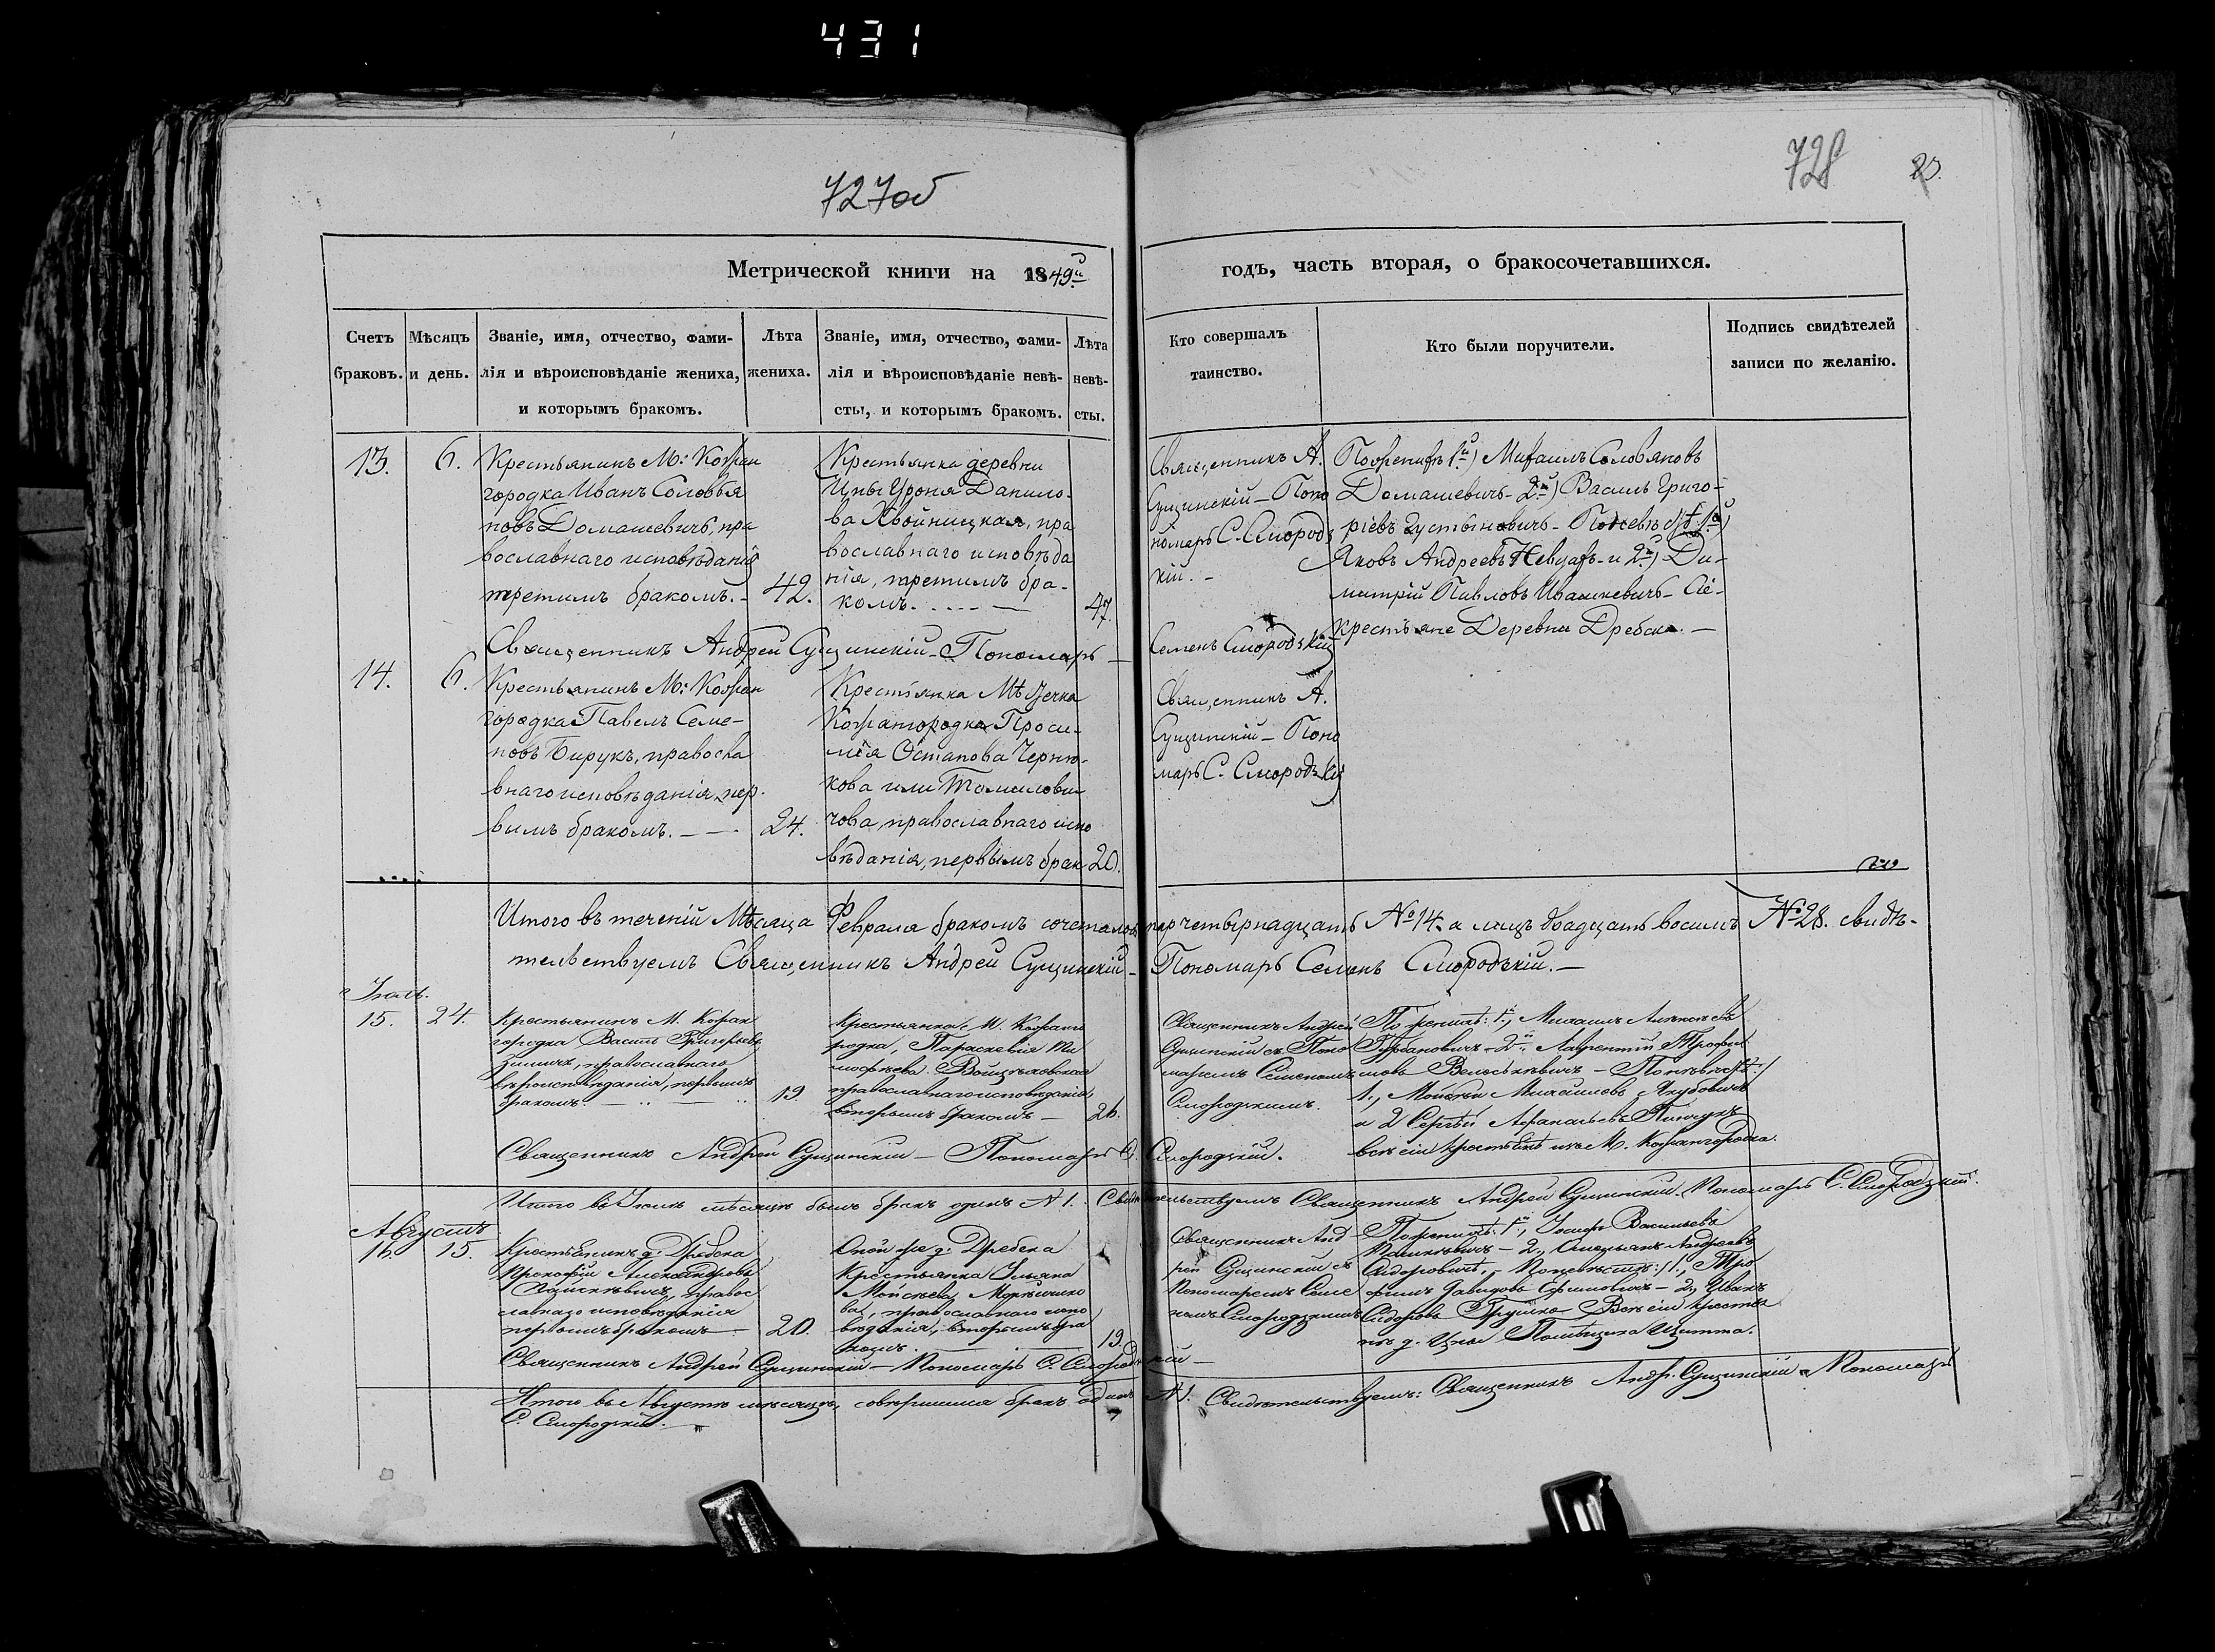 431
727об
728
23.
Метрической книги на 1849й
годъ, часть вторая, о бракосочетавшихся.
Счетъ
браковъ.
Мѣсяцъ
и день.
Званіе, имя, отчество, фами-
лія и вѣроисповѣданіе жениха,
и которымъ бракомъ.
Лѣта
жениха.
Званіе, имя, отчество, фами-
лія и вѣроисповѣданіе невѣ-
сты, и которымъ бракомъ.
Лѣта
невѣ-
сты.
Кто совершалъ
таинство.
Кто были поручители.
Подпись свидѣтелей
записи по желанію.
13.
6.
Крестьянинъ М: Кожан
городка Иванъ Соловья
новъ Домашевичъ, пра
вославнаго исповѣданія
третимъ бракомъ. -
42.
Крестьянка деревни
Цны Уроня Данило-
ва Хвойницкая, пра
вославнаго исповѣда
нія, третимъ бра-
комъ.
47.
Священникъ А.
Сущинскій - Поно
номарь С. Смородз
кій. -
Поженихѣ 1й) Михаилъ Соловяновъ
Домашевичъ - 2й) Василь Григо-
ріевъ Густыновичъ -
Яковъ Андреевъ - и 2й) Ди-
митрій Павловъ Ивашкевичъ - Сіе-
крестьяне Деревни Дребска. -
Священникъ Андрей Сущинскій - Пономарь - Семенъ Смородзкій
14.
6.
Крестьянинъ М: Кожан
городка Павелъ Семе-
новъ Бирукъ, правосла
внаго исповѣданія, пер-
вымъ бракомъ. - -
24.
Крестянка Мѣстечка
Кожангородка Проси-
мія Остапова Черню-
кова или Томилови-
чова, православнаго испо
вѣданія, первымъ брак
20.
Священникъ А.
Сущинскій - Поно
марь С. Смородзкій
Итого въ теченіи Мѣсяца Февраля бракомъ сочеталось паръ четырнадцать №14. а лицъ двадцать восимъ №28. свидѣ-
тельствуемъ Священникъ Андрей Сущинскій - Пономарь Семенъ Смородзкій. -
15.
24.
Крестьянинъ М. Кожан
городка Василь Григорьевъ
православнаго
вѣроисповѣданія, первымъ
бракомъ. -
19.
Крестьянка М. Кожанго
родка, Параскевія Ти
мофѣева Войцѣховская
православнаго исповѣданія,
вторымъ бракомъ -
26.
Священникъ Андрей
Сущинскій съ Поно
маремъ Семеномъ
Смородзкимъ.
По женихѣ: 1й, Михаилъ Алексѣевъ
Турбановичъ - 2й Лаврентій Трофи
мовъ
1., Мойсѣй Михайловъ Якубовичъ
и 2 Сергѣй Афанасьевъ Пинчукъ
всѣ сіи крестьяне изъ М. Кожангородка.
Священникъ Андрей Сущинскій - Пономарь С. Смородзкій.
Итого въ Іюлѣ мѣсяцѣ былъ бракъ одинъ №1. Свидѣтельствуемъ Священникъ Андрей Сущинскій. Пономарь С. Смородзкій.
Августъ
16.
15.
Крестьянинъ д. Дребска
Прокофій Александровъ
Пашкѣвичъ, правос
лавнаго исповѣданія
первымъ бракомъ -
20.
Оной же д. Дребска
Крестьянка Ульяна
Мойсѣева
ва, православнаго испо
вѣданія, вторымъ бра
комъ.
19.
Священникъ Анд
рей Сущинскій съ
Пономаремъ Семе
номъ Смородзкимъ
По женихѣ: 1й, Іосифъ Васильевъ
Пашкѣвичъ - 2., Емельянъ Андреевъ
Сидоровичъ, - По невѣстѣ: 1., Тро
фимъ Давидовъ Ефимовичъ - 2, Иванъ
Сидоровъ Грушко Всѣ сіи крестья
не д. Цны Помѣщика
Священникъ Андрей Сущинскій - Пономарь С. Смородзкій -
Итого въ Августѣ мѣсяцѣ, совершился бракъ одинъ №1. Свидѣтельствуемъ: Священникъ Андр. Сущинскій и Пономарь
С. Смородзкій.